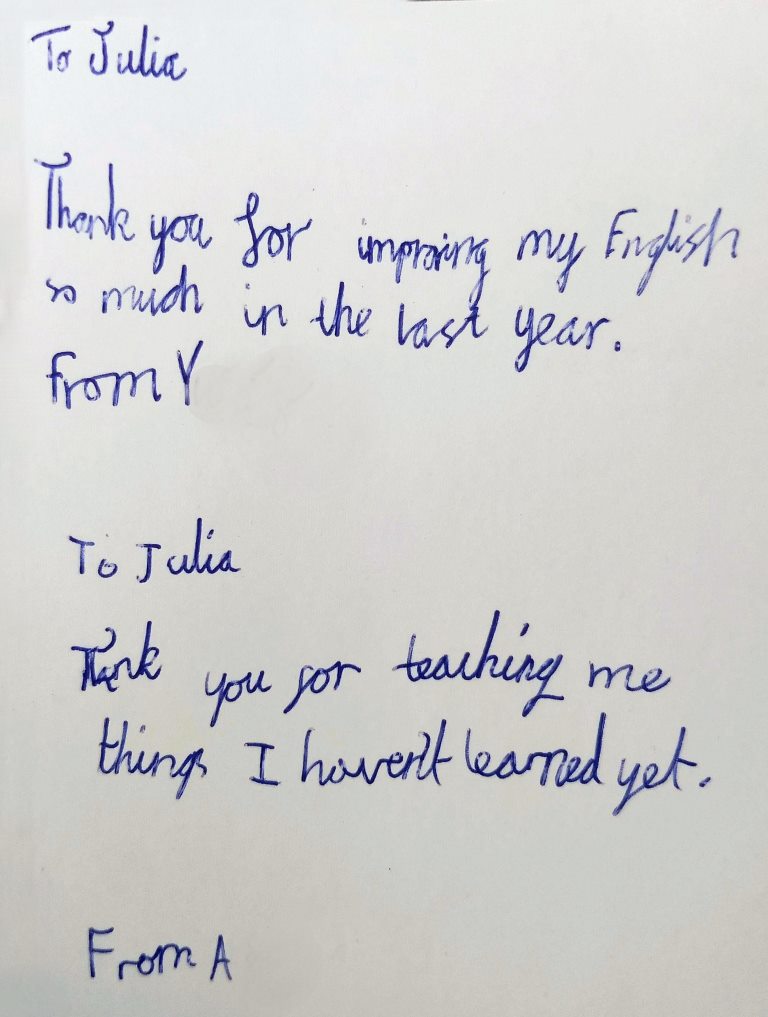 To Julia
Thank you for improving my English
so much in the last year.
From Y
To Julia
Thank you for teaching me
things I haven't learned yet.
From A